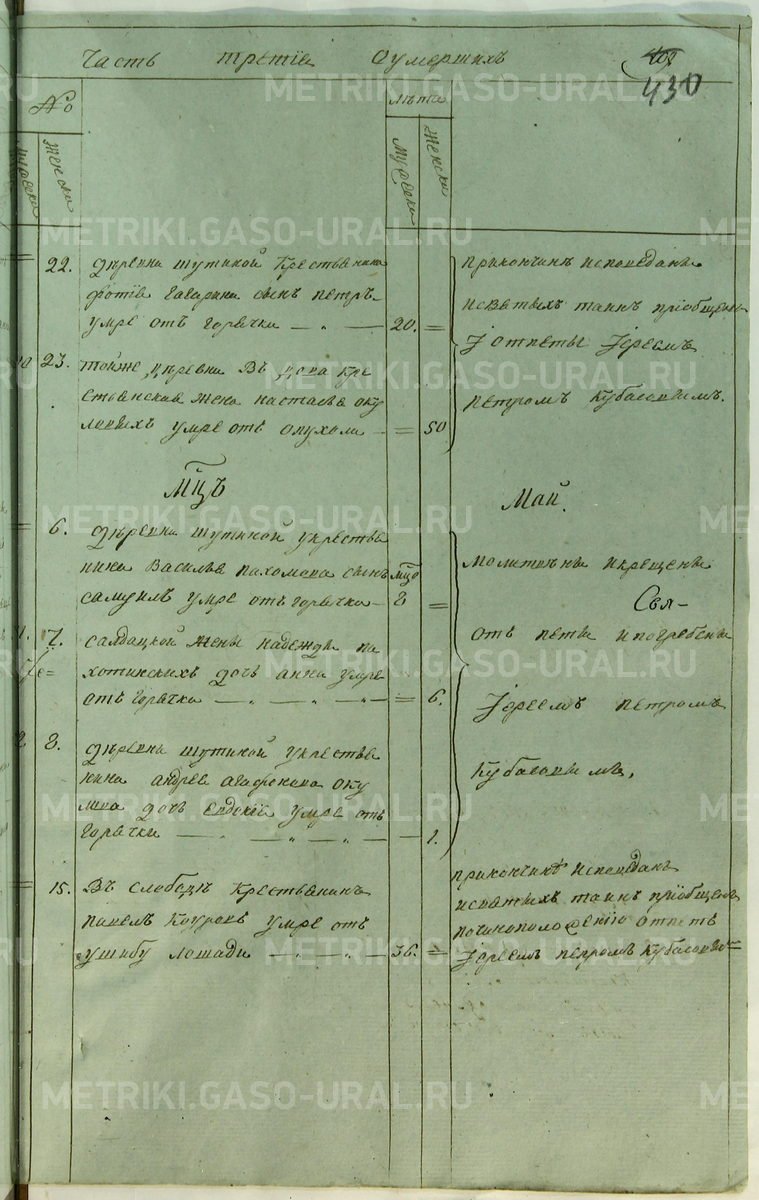 Часть третïе оумершихъ
430
№
лѣта
Мужески
Женски
Мужески
Женски
22. Дѣревни шутиной крестьянина
фотïе гагарина сынъ петръ
умре отъ горячки 20. =
прикончинѣ исповеданы
исвятыхъ таинъ прïобщены
и отпеты Iереемъ
петромъ Кубасовымъ.
23. тойже дѣревни въ дова кре
стьянская жена настасья оку
ловыхъ умре отъ опухоли = 50
Мцъ Май.
6. Дѣревни шутиной укрестья
нина Василья пахомова сынъ мцо
самуилъ умре отъ горячки 8 =
молитвѣны икрещены
Свя-
отъ петы ипогребены
Iереемъ петромъ
Кубасовымъ,
7. салдацкой жены надежды па
хотинскихъ дочь анна умре
отъ горячки = 6.
8. Дѣревни шутиной укрестья
нина андрея агафонова оку
лова дочь евдокïя умре отъ
горячки 1.
15. Въ слободѣ крестьянинъ
павелъ коуровъ умре отъ
ушибу лошади 36. =
прикончинѣ исповеданъ
исвятыхъ таинъ прïобщенъ
починоположенïю отпетъ
Iереемъ петромъ Кубасовымъ
METRIKI.GASO-URAL.RU